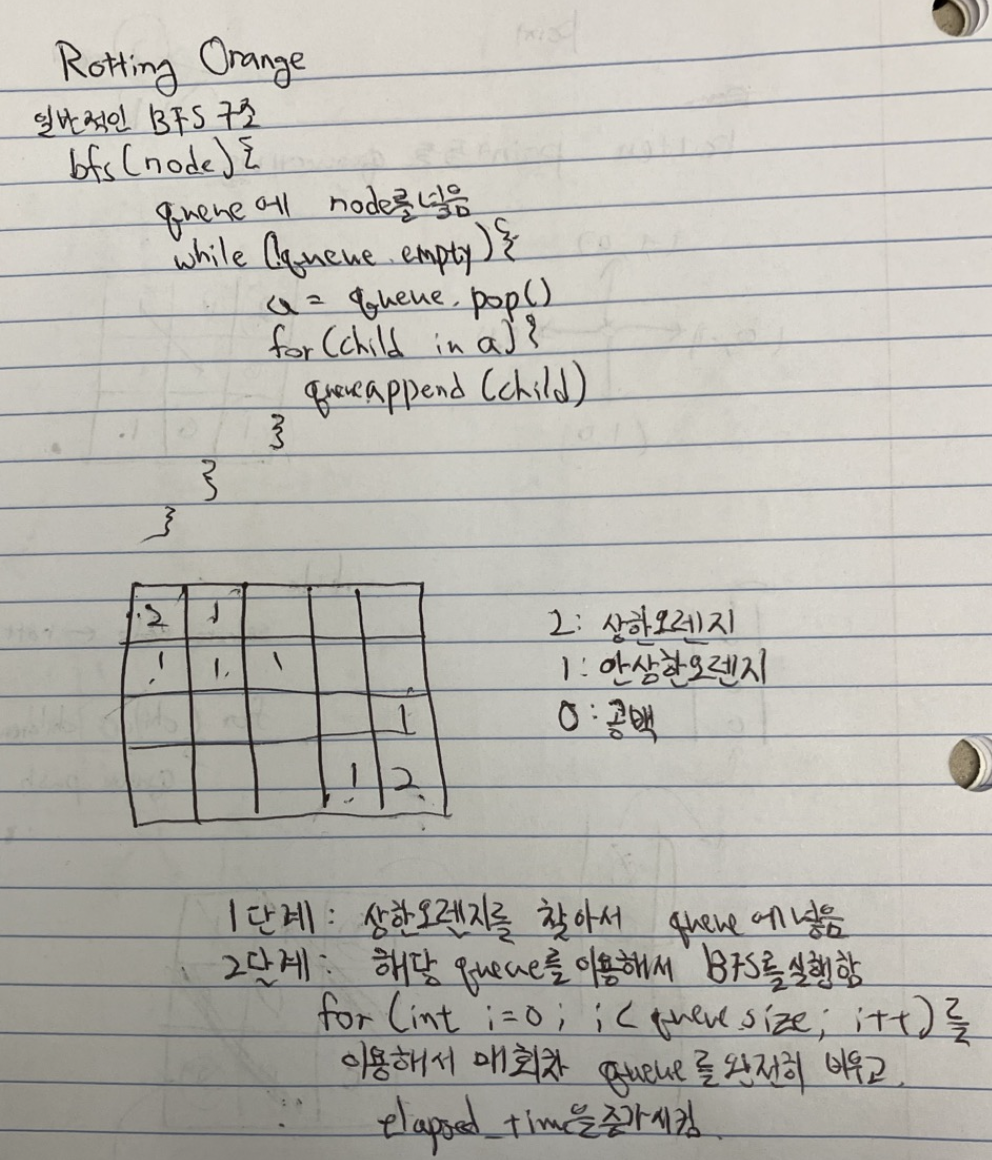 Rotting Orange
일반적인 BFS 구조
bfs(node){
queue에 node를 넣음
while (!queue.empty){
a = queue.pop()
for(child in a){
queue.append(child)
}
}
}
2 1
1 1 1
1
1 2
2: 상한오렌지
1: 안상한오렌지
0: 공백
1단계: 상한오렌지를 찾아서 queue에 넣음
2단계: 해당 queue를 이용해서 BFS를 실행함
for(int i=0; i<queue.size; i++)를
이용해서 매회차 queue를 완전히 비우고,
elapsed_time을 증가시킴.